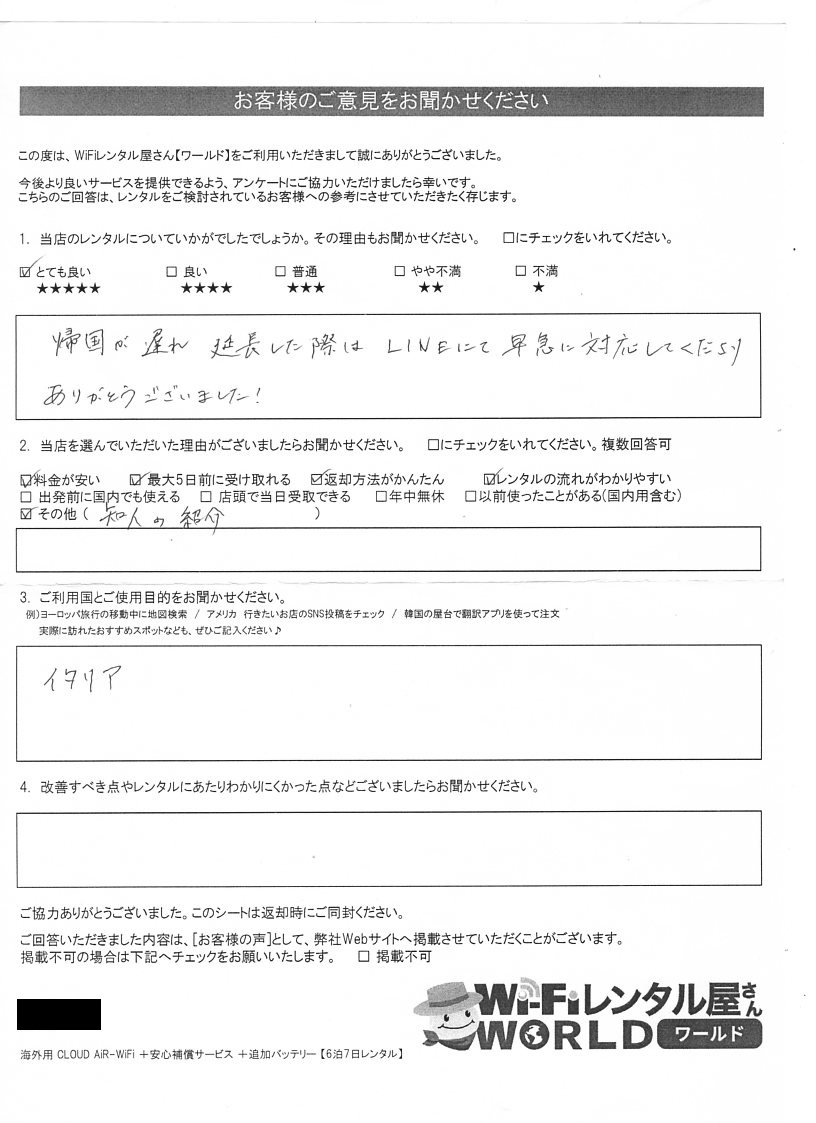 お客様のご意見をお聞かせください
この度は、WiFiレンタル屋さん【ワールド】をご利用いただきまして誠にありがとうございました。
今後より良いサービスを提供できるよう、アンケートにご協力いただけましたら幸いです。
こちらのご回答は、レンタルをご検討されているお客様への参考にさせていただきたく存じます。
1. 当店のレンタルについていかがでしたでしょうか。その理由もお聞かせください。 □にチェックをいれてください。
☑とても良い □ 良い □ 普通 □ やや不満 □ 不満
★★★★★ ★★★★ ★★★ ★★ ★
帰国が遅れ 延長した際は LINEにて早急に対応してくださり
ありがとうございました!
2. 当店を選んでいただいた理由がございましたらお聞かせください。 □にチェックをいれてください。複数回答可
☑料金が安い ☑最大5日前に受け取れる ☑返却方法がかんたん ☑レンタルの流れがわかりやすい
□ 出発前に国内でも使える □ 店頭で当日受取できる □年中無休 □以前使ったことがある(国内用含む)
☑その他 ( 知人の紹介 )
3. ご利用国とご使用目的をお聞かせください。
例)ヨーロッパ旅行の移動中に地図検索 / アメリカ 行きたいお店のSNS投稿をチェック / 韓国の屋台で翻訳アプリを使って注文
実際に訪れたおすすめスポットなども、ぜひご記入ください♪
イタリア
4. 改善すべき点やレンタルにあたりわかりにくかった点などございましたらお聞かせください。
ご協力ありがとうございました。このシートは返却時にご同封ください。
ご回答いただきました内容は、[お客様の声]として、弊社Webサイトへ掲載させていただくことがございます。
掲載不可の場合は下記へチェックをお願いいたします。 □ 掲載不可
Wi-Fiレンタル屋さん
WORLD ワールド
海外用 CLOUD AiR-WiFi +安心補償サービス +追加バッテリー【6泊7日レンタル】